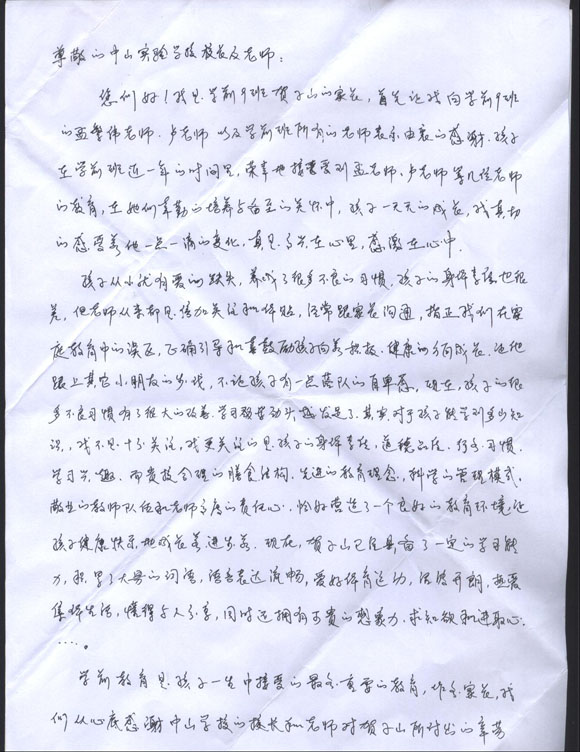 尊敬的中山实验学校校长及老师：
您们好！我是学前9班贺子山的家长，首先让我向学前9班
的孟繁伟老师、卢老师以及学前班所有的老师表示由衷的感谢。孩子
在学前班近一年的时间里，荣幸地接受到孟老师、卢老师等几位老师
的教育，在她们辛勤的培养与备至的关怀中，孩子一天天的成长，我真切
的感受着他一点一滴的变化，真是喜在心里，感激在心中。
孩子从小就有爱的缺失，养成了很多不良的习惯，孩子的身体素质也很
差，但老师从来都是倍加关注和体贴，经常跟家长沟通，指正我们在家
庭教育中的误区，正确引导和鼓励孩子向着积极、健康的方向成长。让他
跟上其它小朋友的步伐，不让孩子有一点落队的自卑感，现在，孩子的很
多不良习惯有了很大的改善，学习劲头越发足了。其实对于孩子能学到多少知
识，我不是十分关注，我更关注的是孩子的身体素质、道德品质、行为习惯、
学习兴趣。而贵校合理的膳食结构、先进的教育理念、科学的管理模式、
敬业的教师队伍和老师高度的责任心，恰好营造了一个良好的教育环境，让
孩子健康快乐地成长着、进步着。现在，贺子山已经具备了一定的学习能
力，积累了大量的词语，语言表达流畅，爱好体育运动，活泼开朗，热爱
集体生活，懂得与人分享，同时还拥有可贵的想象力、求知欲和进取心
……。
学前教育是孩子一生中接受的最为重要的教育，作为家长，我
们从心底感谢中山学校的校长和老师对贺子山所付出的辛劳